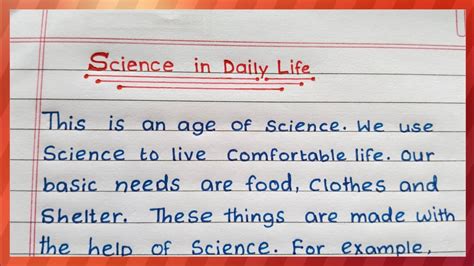 Science in Daily Life
This is an age of science. We use
Science to live comfortable life. Our
basic needs are food, Clothes and
Shelter. These things are made with
the help of Science. For example,